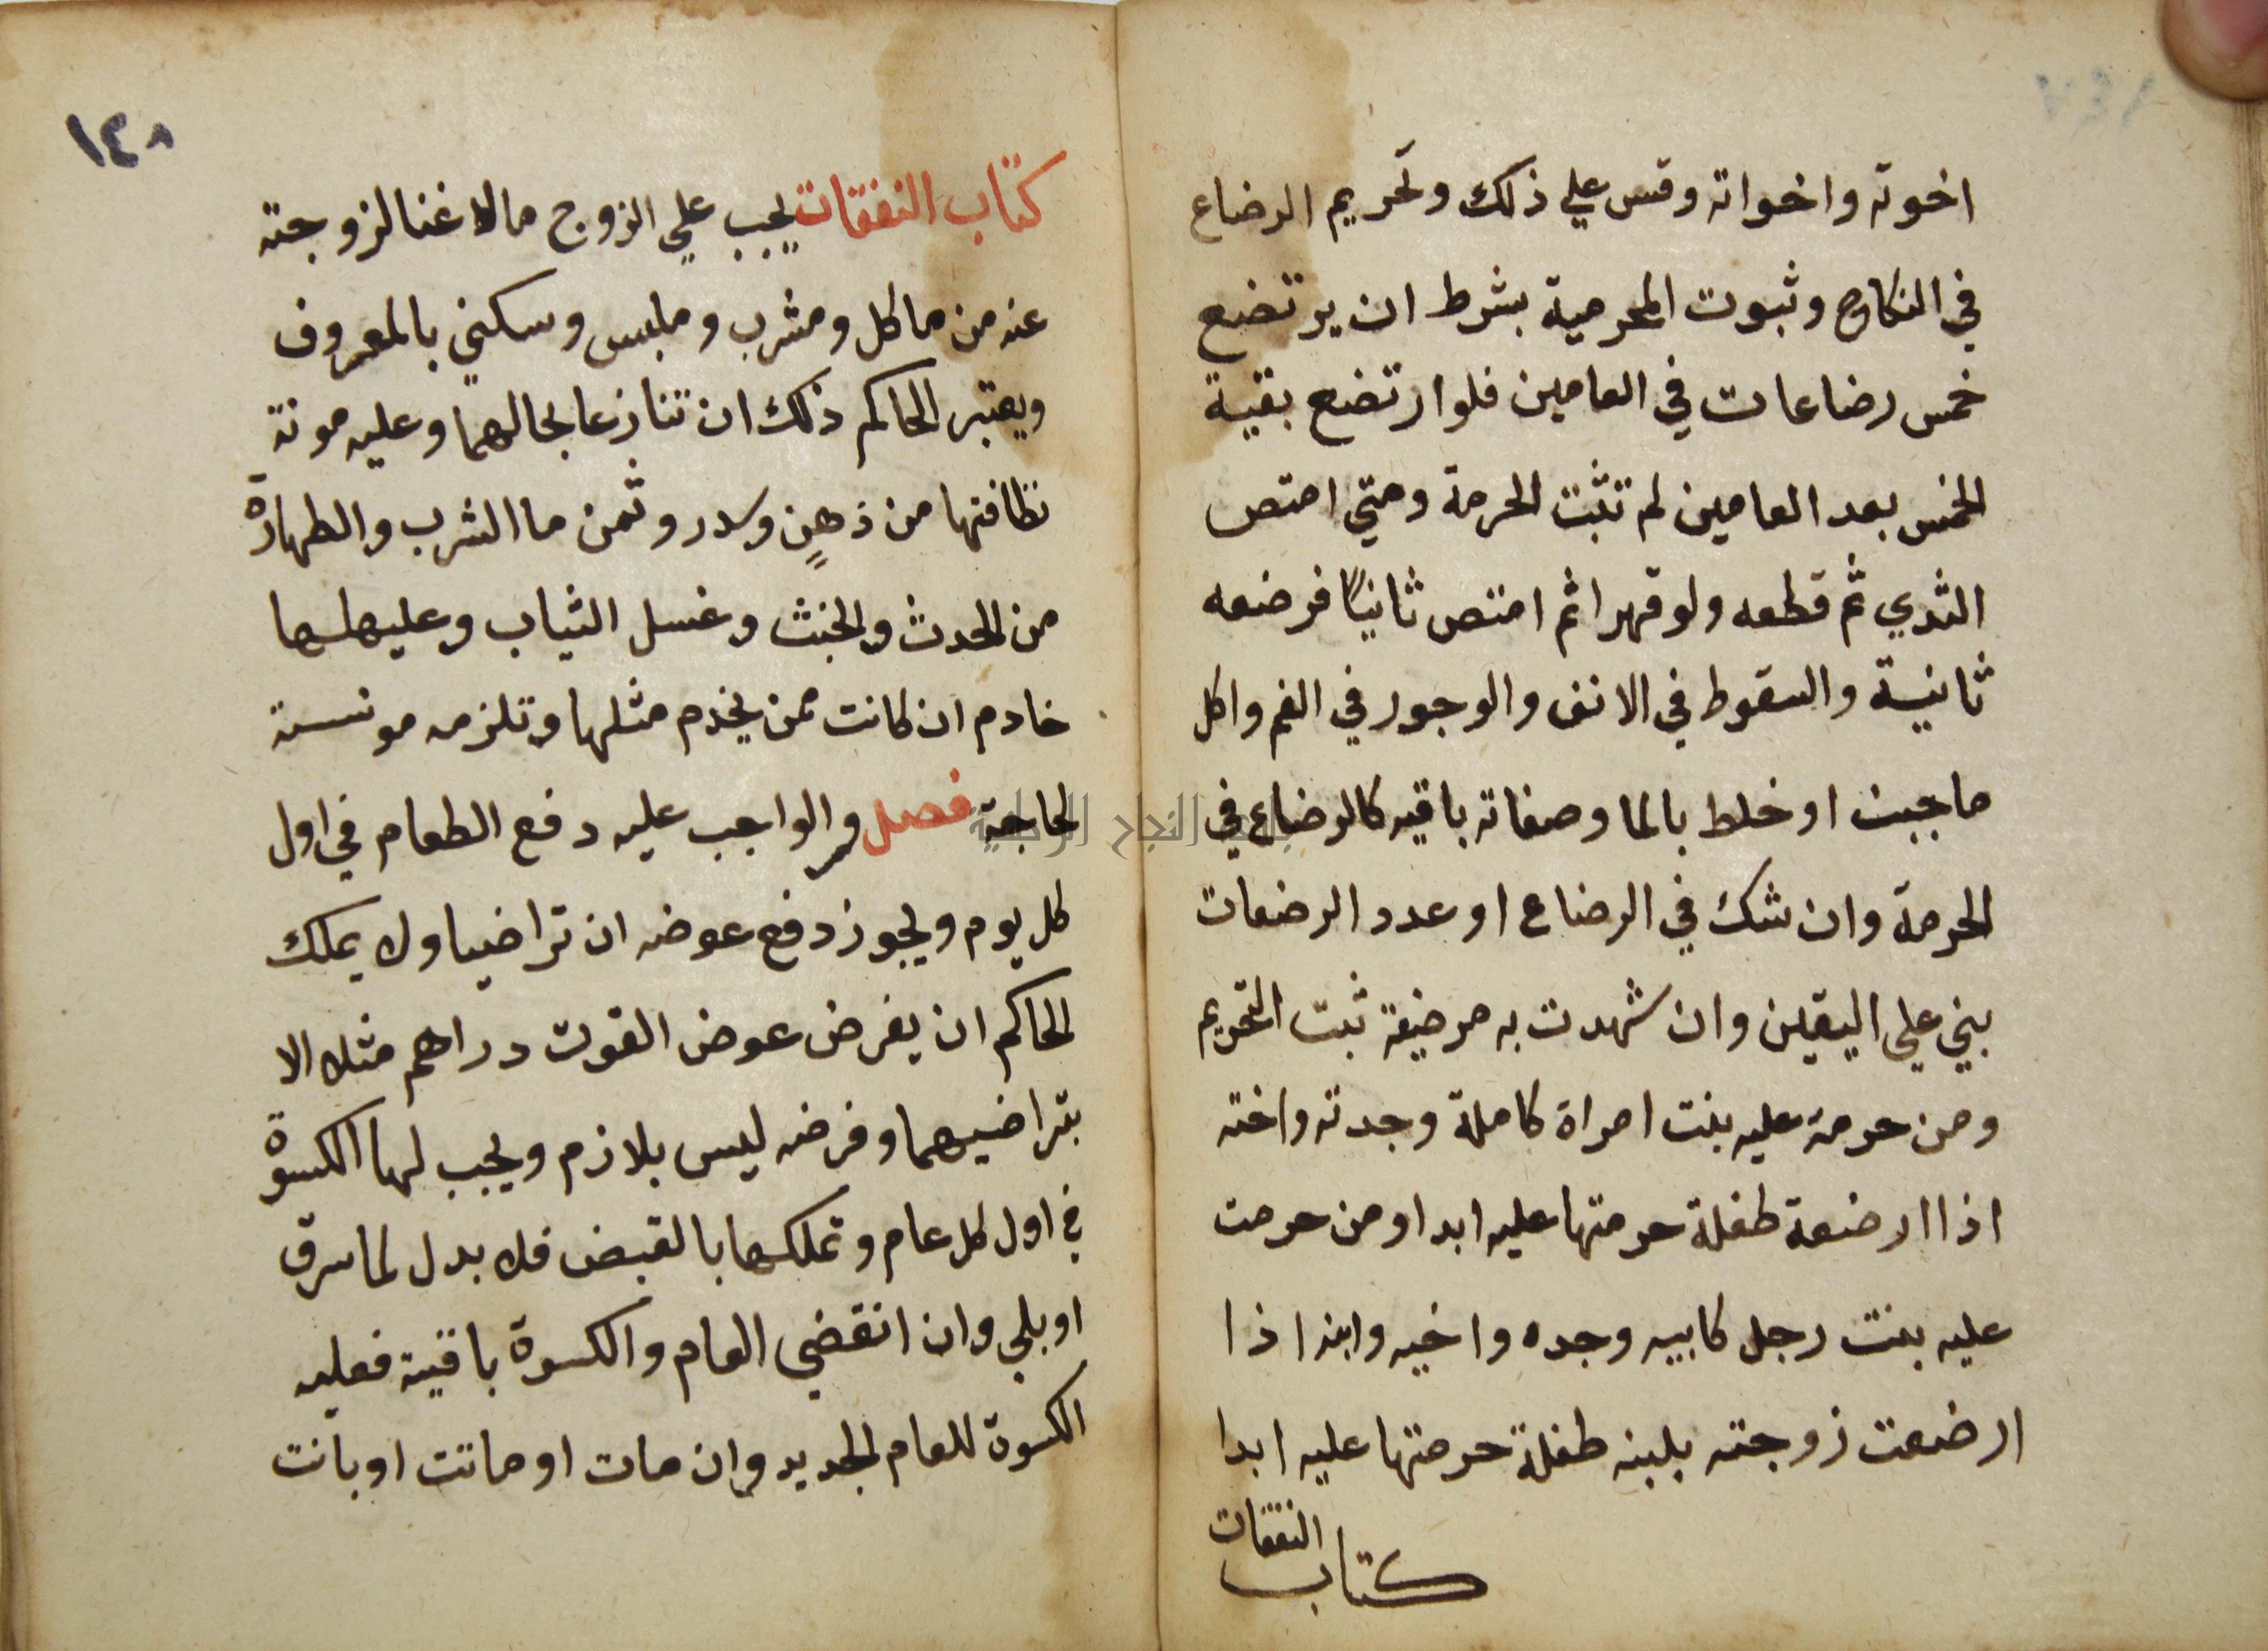 اخوته واخواته وقس علي ذلك وتحريم الرضاع
في النكاح وثبوت المحرمية بشرط ان يرتضع
خمس رضاعات في العامين فلوا رتضع بقية
الخمس بعد العامين لم تثبت الحرمة ومتي امتص
الثدي ثم قطعه ولو قهرا ثم امتص ثانيًا فرضعه
ثانية والسقوط في الانف والوجور في الفم واكل
ما جبن او خلط بالما وصفاته باقيه كالرضاع في
الحرمة وان شك في الرضاع او عدد الرضعات
بني علي اليقين وان شهدت به مرضيعة ثبت التحريم
ومن حرمة عليه بنت امراة كاملة وجدته واخته
اذا ارضعة طفلة حرمتها عليه ابدا ومن حرمت
عليه بنت رجل كابيه وجده واخيه وابنه اذا
ارضعت زوجته بلبنه طفلة حرمتها عليه ابدا
كتاب النفقات
١٤٨
كتاب النفقات يجب علي الزوج مالا غنا لزوجته
عنه من ماكل ومشرب وملبس وسكني بالمعروف
ويعتبر الحاكم ذلك ان تنازعا بحالهما وعليه مونة
نظافتها من ذهن وسدر وثمن ما الشرب والطهارة
من الحدث والخبث وغسل الثياب وعليه لها
خادم ان كانت ممن يخدم مثلها وتلزمه مونسة
لحاجة فصل والواجب عليه دفع الطعام في اول
كل يوم ويجوز دفع عوضه ان تراضيا ولا يملك
الحاكم ان يفرض عوض القوت دراهم مثلا الا
بتراضيهما وفرضه ليس بلازم ويجب لها الكسوة
في اول كل عام وتملكها بالقبض فلا بدل لما سرق
او بلي وان انقضي العام والكسوة باقية فعليه
الكسوة للعام الجديد وان مات او ماتت او بانت